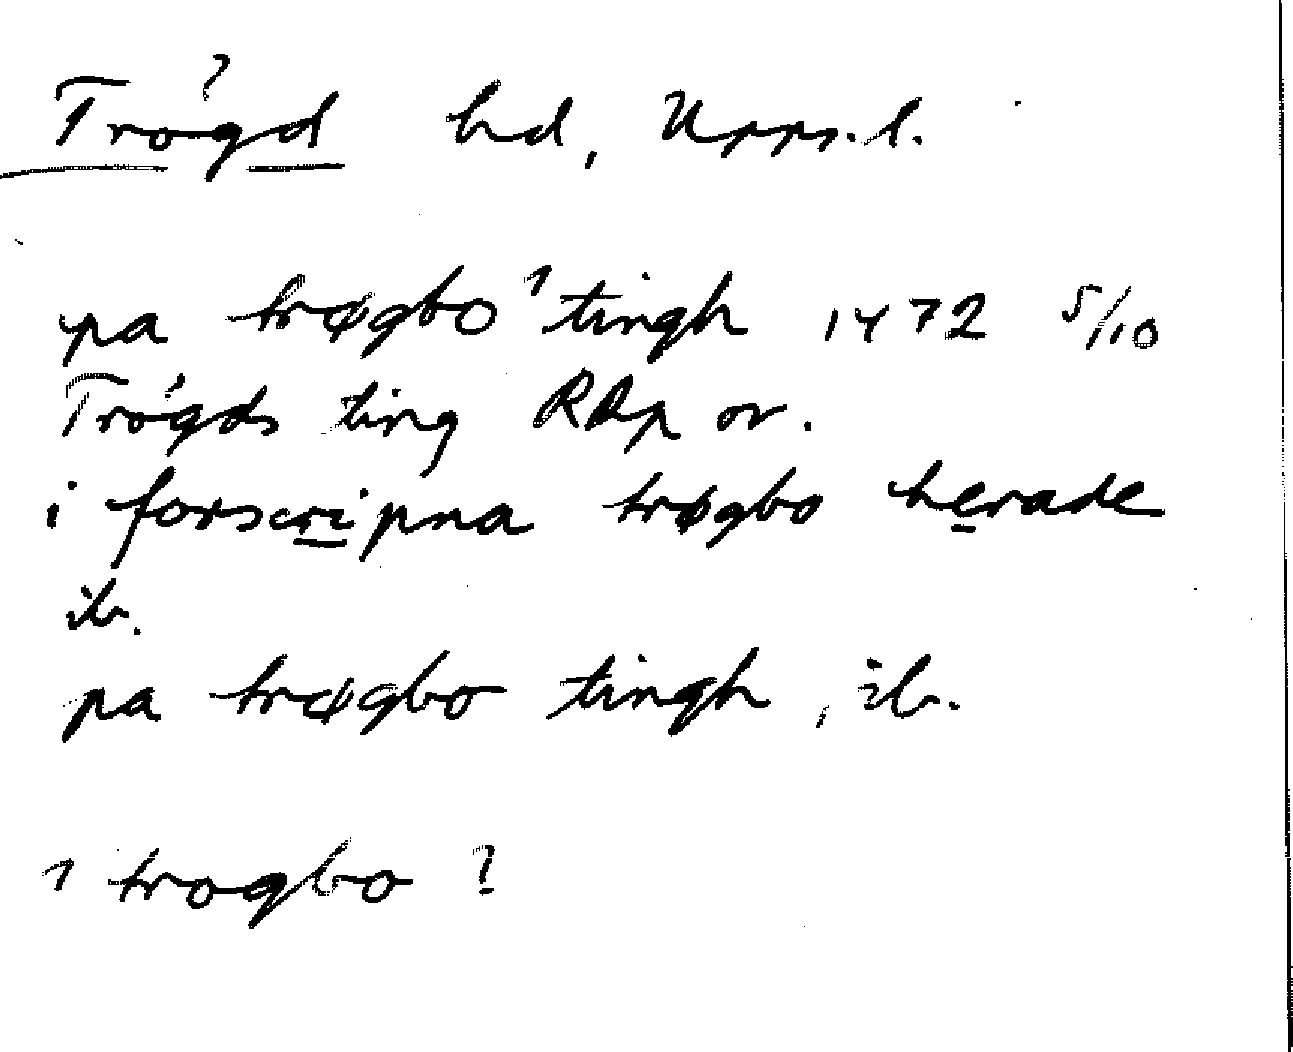 Trögd hd, Upps. l.
pa trøgbo ¹ tingh 1472 5/10
Trögds ting RAp or.
i forscripna trøgbo herade
ib.
pa trøgbo tingh, ib.
1 trogbo ?